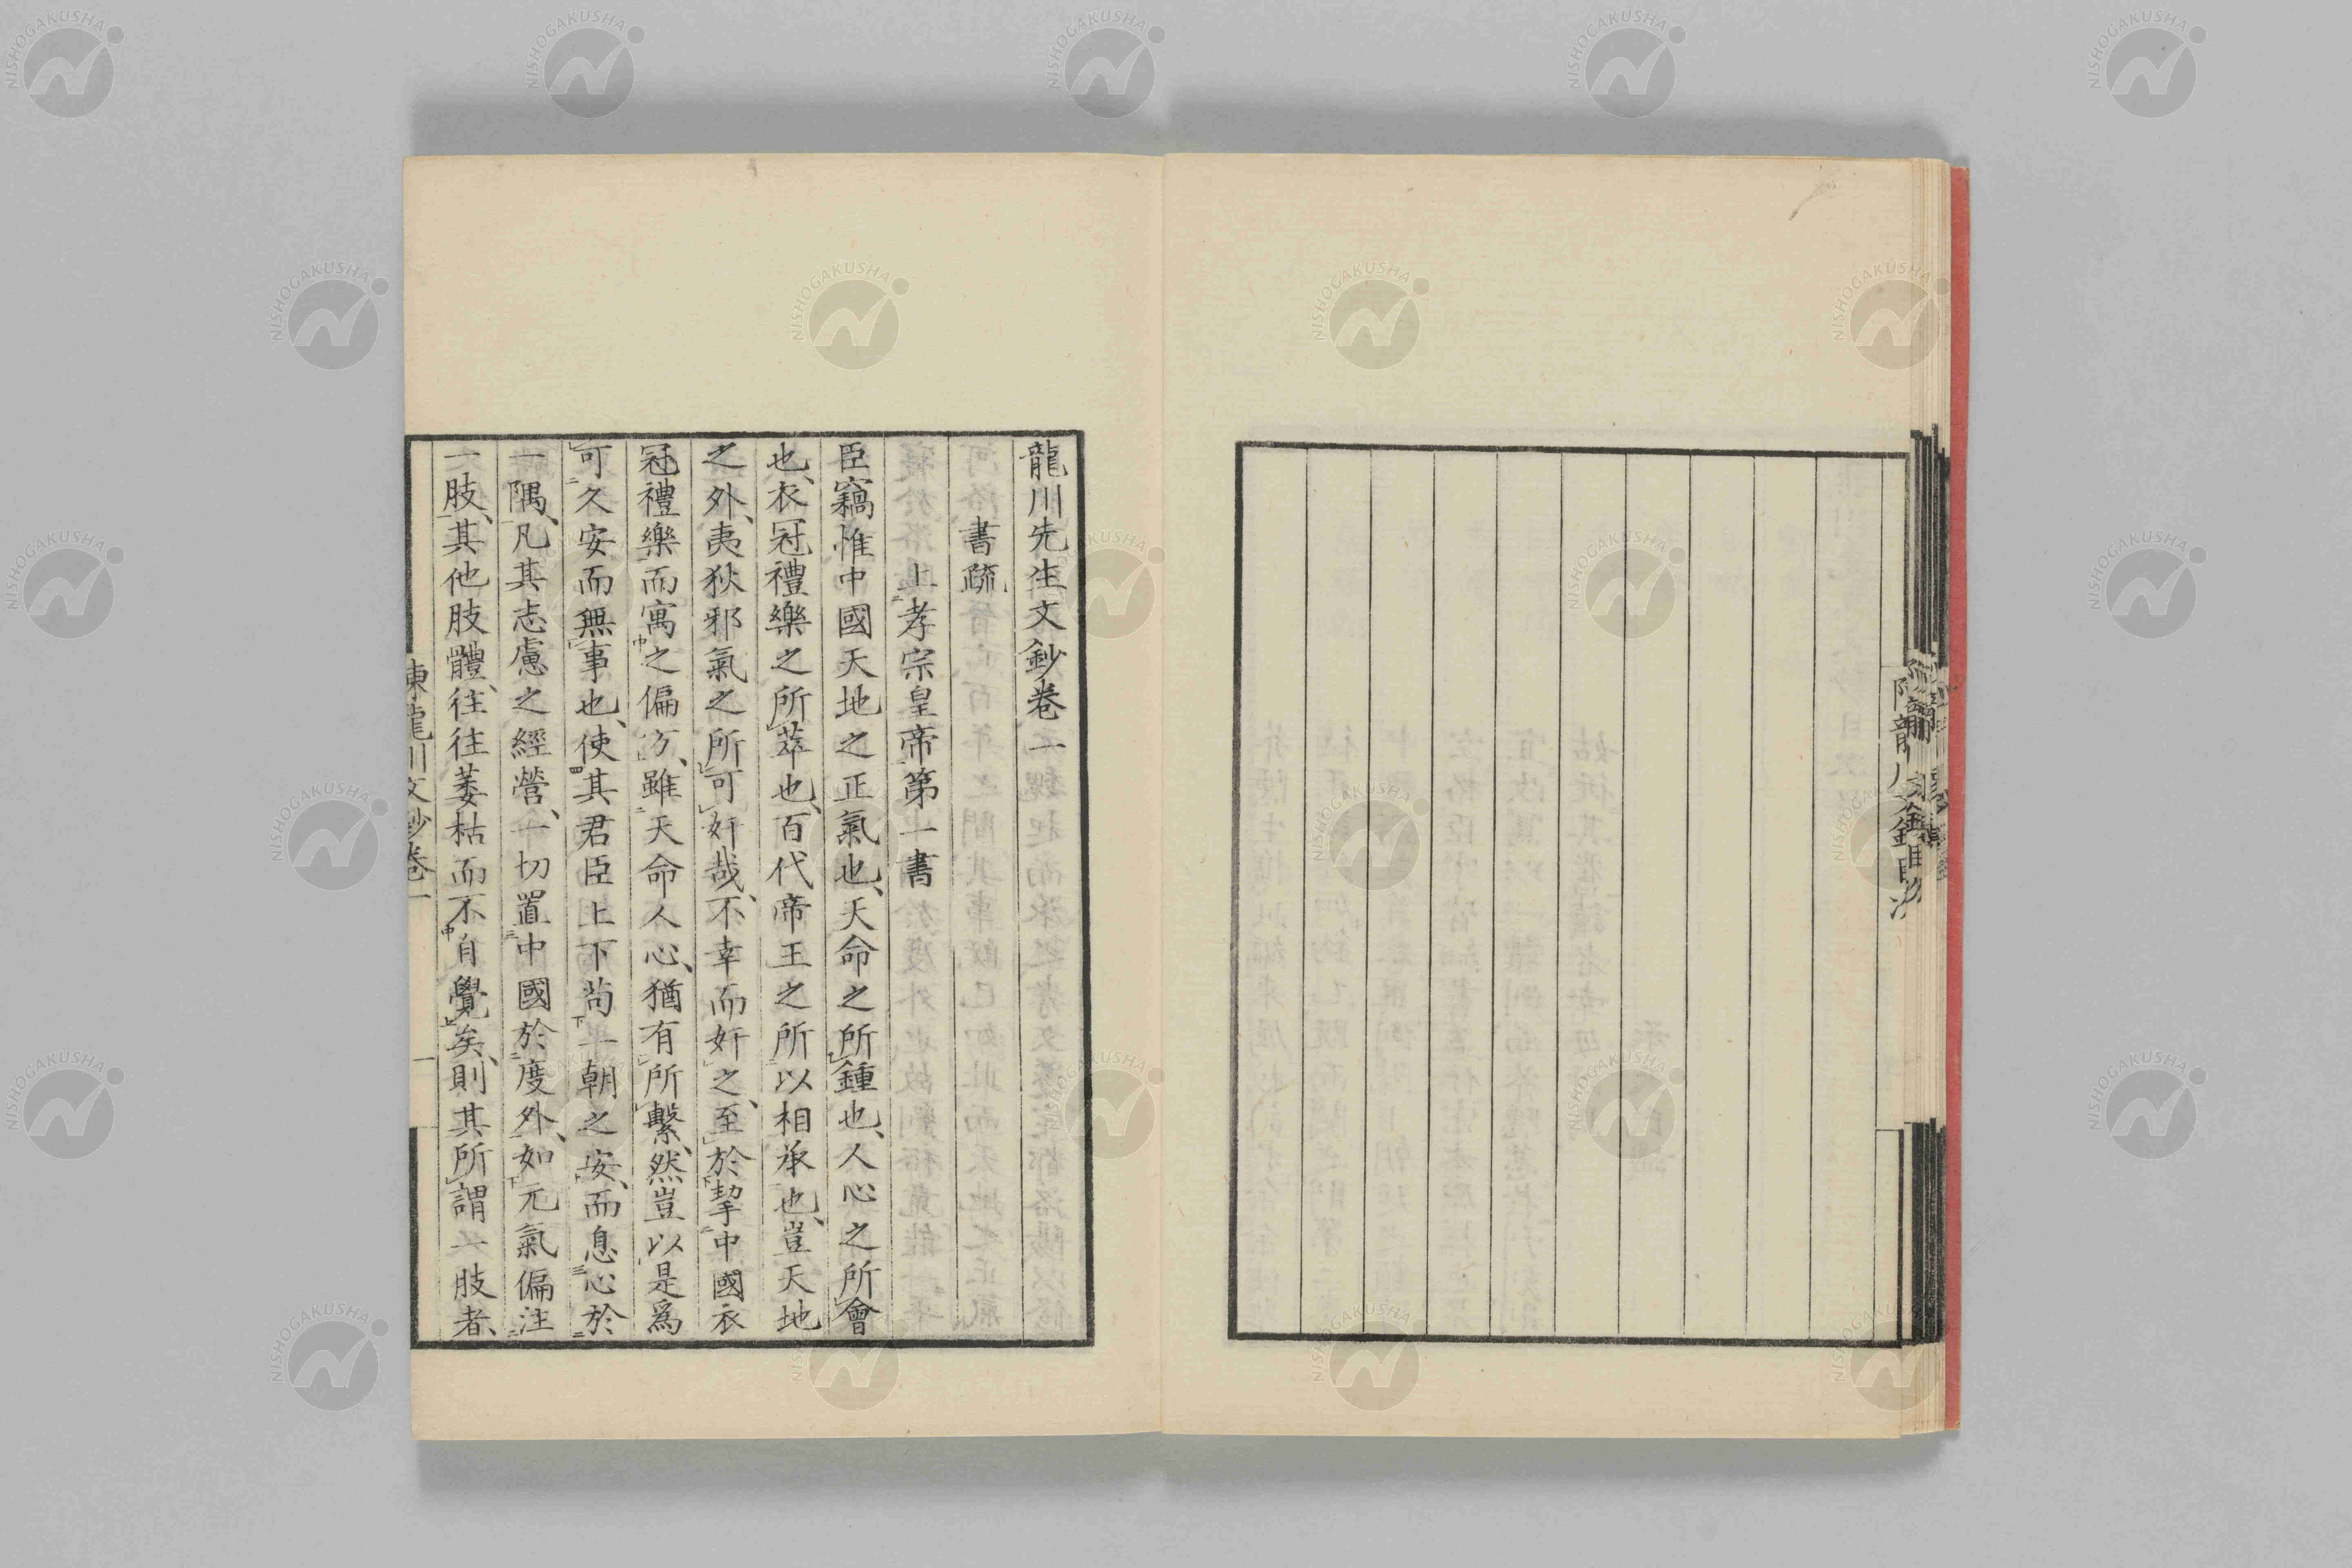 龍川先生文鈔卷一
書疏
上孝宗皇帝第一書
臣竊惟中國天地之正氣也、天命之所鍾也、人心之所會
也、衣冠禮樂之所萃也、百代帝王之所以相承也、豈天地
之外、夷狄邪氣之所可奸哉、不幸而奸之、至於挈中國衣
冠禮樂而寓之偏方、雖天命人心、猶有所繫、然豈以是爲
可久安而無事也、使其君臣上下苟一朝之安、而息心於
一隅、凡其志慮之經營、一切置中國於度外、如元氣偏注
一肢、其他肢體、往往萎枯而不自覺矣、則其所謂一肢者、
陳龍川文鈔卷一
一
NISHOGAKUSHA